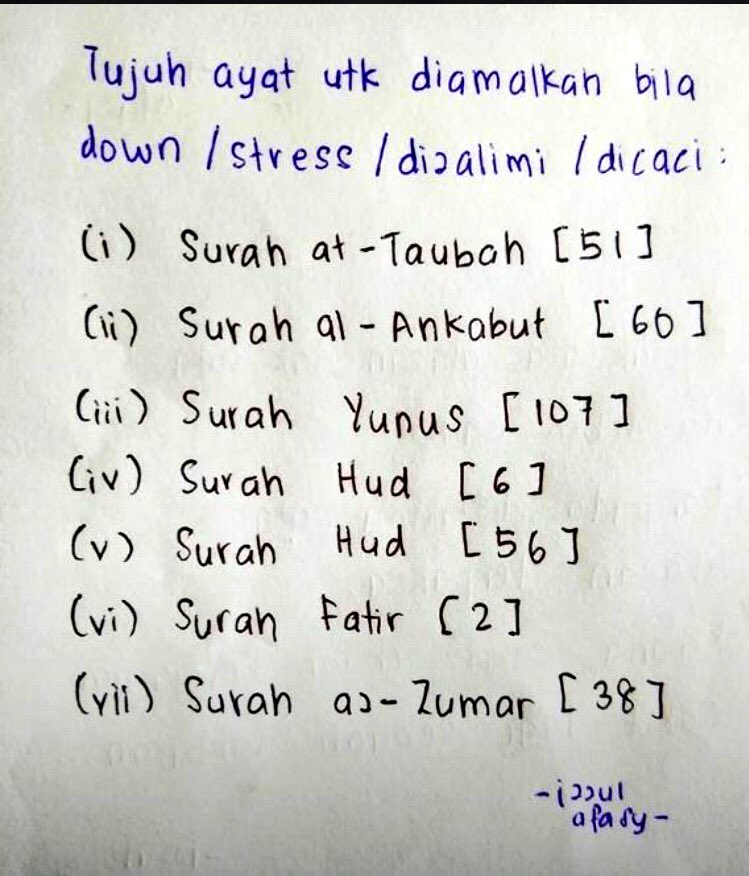 Tujuh ayat utk diamalkan bila
down / stress / dizalimi / dicaci :
(i) Surah at-Taubah [51]
(ii) Surah al-Ankabut [60]
(iii) Surah Yunus [107]
(iv) Surah Hud [6]
(v) Surah Hud [56]
(vi) Surah Fatir [2]
(vii) Surah az-Zumar [38]
-izzul
afasy-